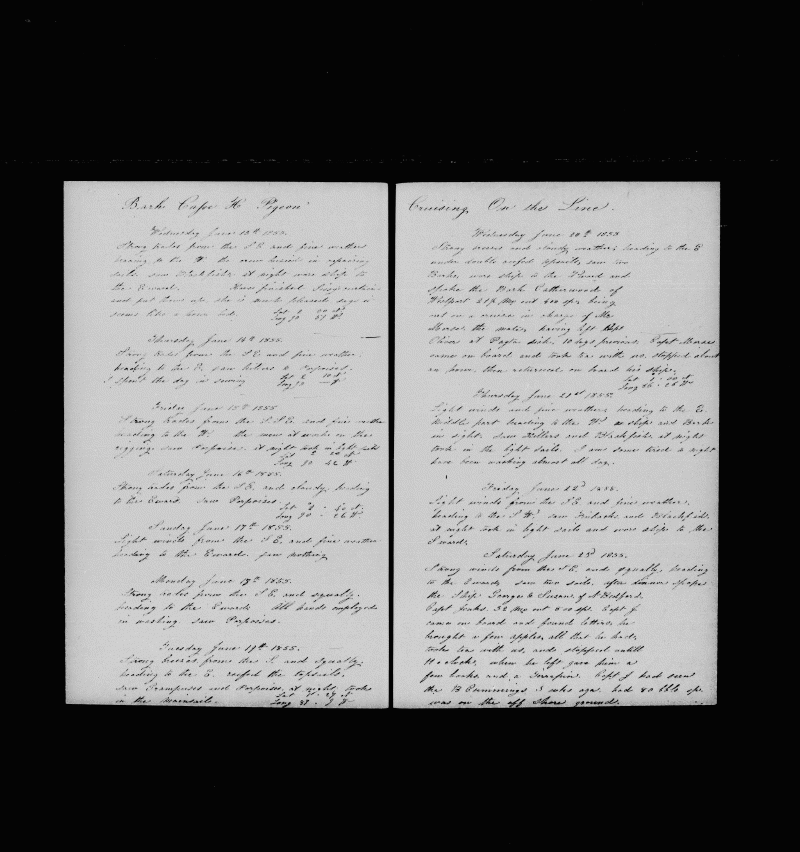 Bark Cape H Pigeon
Wednesday June 13th 1855.
Strong trades from the S E and fine weather
heading to the W. the men busied in repairing
sails saw Blackfish at night wore ship to
the Eward. Have finished
and put them up, she is much pleased says it
seems like a home
Lat 2 00 N
Long 90 37 W
Thursday June 14th 1855.
Strong trades from the S E and fine weather,
heading to the E, saw killers & Porpoises.
Lat 2 10 N
I spent the day in sewing
Long 90 W
Friday June 15th 1855
Strong trades from the S.S.E. and fine weather
heading to the W. the men at work on the
rigging. saw Porpoises. at night took in light sails
Lat 2 20 N
Long 90 42 W
Saturday June 16th 1855.
Strong trades from the S. E. and cloudy, heading
to the Eward. saw Porpoises.
Lat 2 40 N
Long 90 26 W
Sunday June 17th 1855.
Light winds from the S. E. and fine weather
heading to the Eward. saw nothing
Monday June 18th 1855.
Strong trades from the S. E. and squally.
heading to the Eward. All hands employed
in washing. saw Porpoises.
Tuesday June 19th 1855.
Strong breezes from the S. and squally,
heading to the E. reefed the topsails.
saw Grampuses and Porpoises, at night, took
in the mainsail.
Lat 1 29 N
Long 88 9 W
Cruising On the Line.
Wednesday June 20th 1855
Strong breeze and cloudy weather, heading to the E
under double reefed topsails, saw two
Barks, wore ship to the Wward and
spoke the Bark Catherwood of
Westport 21½ Mo out 400 sp. being
out on a cruise in charge of Mr
Morse the mate, having left Capt
Cleves at Payta sick, 10 days previous. Capt Morse
came on board and took tea with us, stopped about
an hour then returned on board his ship.
Lat 1 00 N
Long 86 26 W
Thursday June 21st 1855.
Light winds and fine weather, heading to the E.
Middle part heading to the W. a ship and Bark
in sight. saw Killers and Blackfish. at night
took in the light sails. I am some tired to night
have been washing almost all day.
Friday June 22d 1855.
Light winds from the S E and fine weather,
heading to the S W. saw Finbacks and Blackfish.
at night took in light sails and wore ship to the
Eward.
Saturday June 23d 1855.
Strong winds from the S. E. and squally, heading
to the Eward, saw two sails, after dinner spoke
the Ship George & Susan of N Bedford.
Capt Jenks. 32 Mo out 800 sp. Capt J
came on board and found letters, he
brought a few apples, all that he had,
took tea with us, and stopped untill
11 o clock. when he left gave him a
few books and a Terrapin. Capt J had seen
the B Cummings 3 wks ago. had 80 bbls sp.
was on the off Shore grounds.